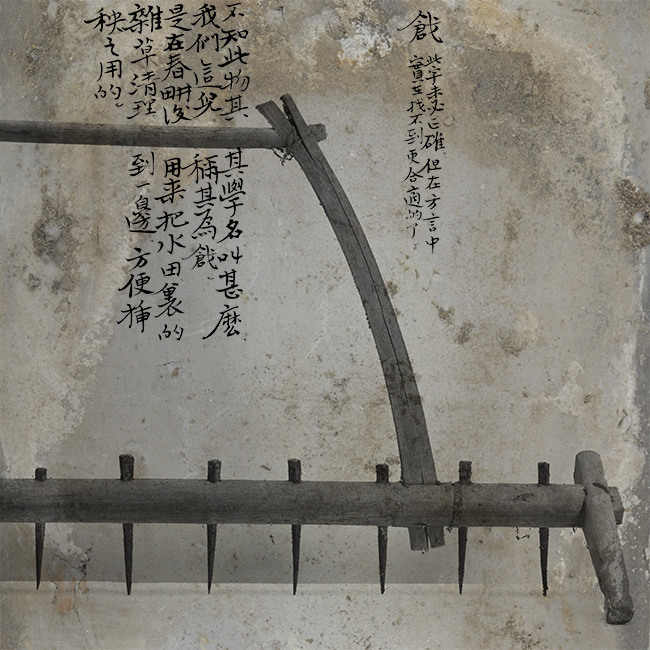 戧
此字未必正確，但在方言中
實在找不到更合適的了。
不知此物其 其學名叫甚麼，
我們這兒 稱其為戧。
是在春耕後 用来把水田裏的
雜草清理 到一邊 方便插
秧之用的。